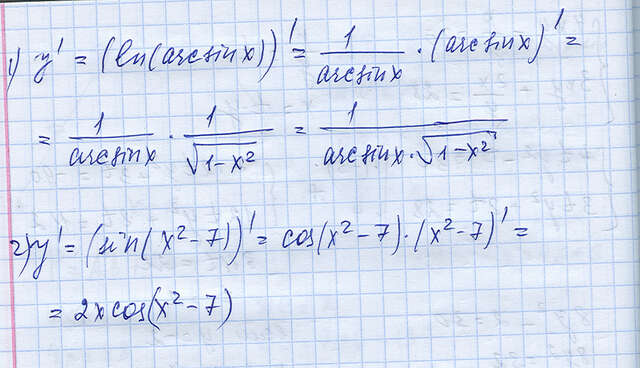 1) y' = (ln(arcsinx))' = 1/arcsinx · (arcsinx)' =
= 1/arcsinx · 1/√(1-x²) = 1/(arcsinx·√(1-x²))
2) y' = (sin(x²-7))' = cos(x²-7)·(x²-7)' =
= 2xcos(x²-7)